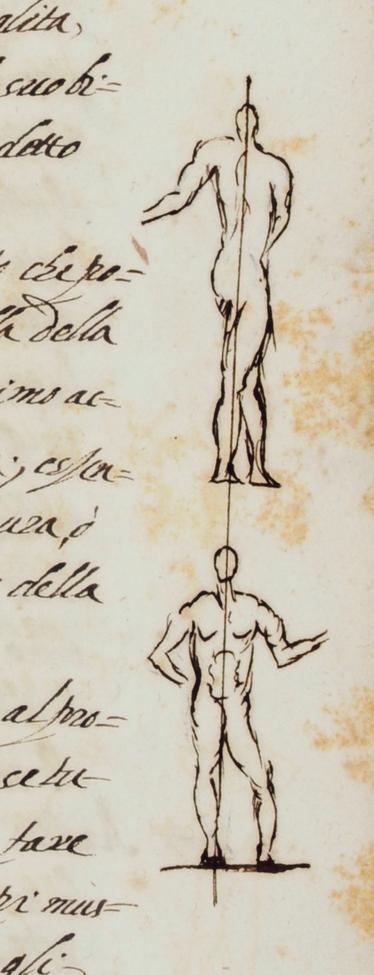 alita,
suo bi=
detto
che po=
la della
imo ac=
essen=
uza, ò
della
al pro=
se tu-
tare
pri mus=
gli-